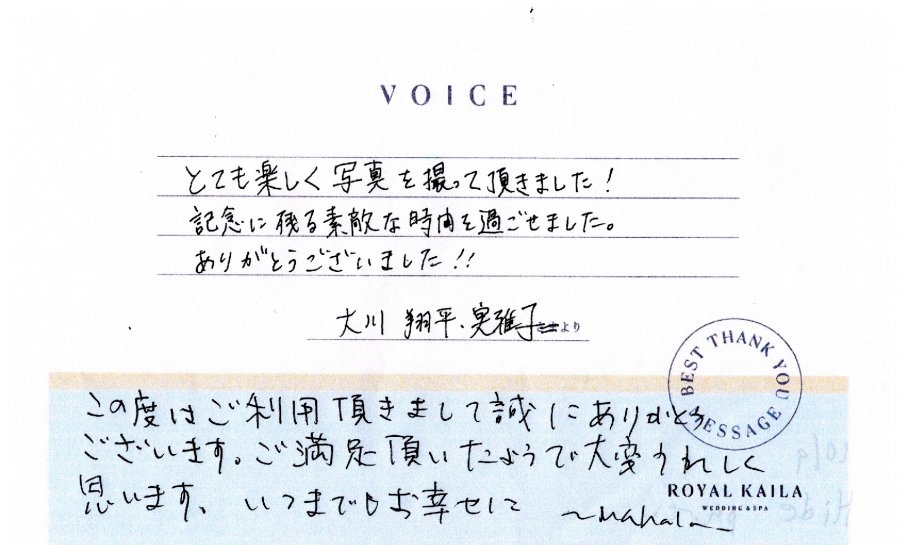 VOICE
とても楽しく写真を撮って頂きました!
記念に残る素敵な時間を過ごせました。
ありがとうございました!!
大川 翔平、実雅子より
BEST THANK YOU MESSAGE
この度はご利用頂きまして誠にありがとう
ございます。ご満足頂いたようで大変うれしく
思います。いつまでもお幸せに
ROYAL KAILA
WEDDING & SPA
~mahalo~